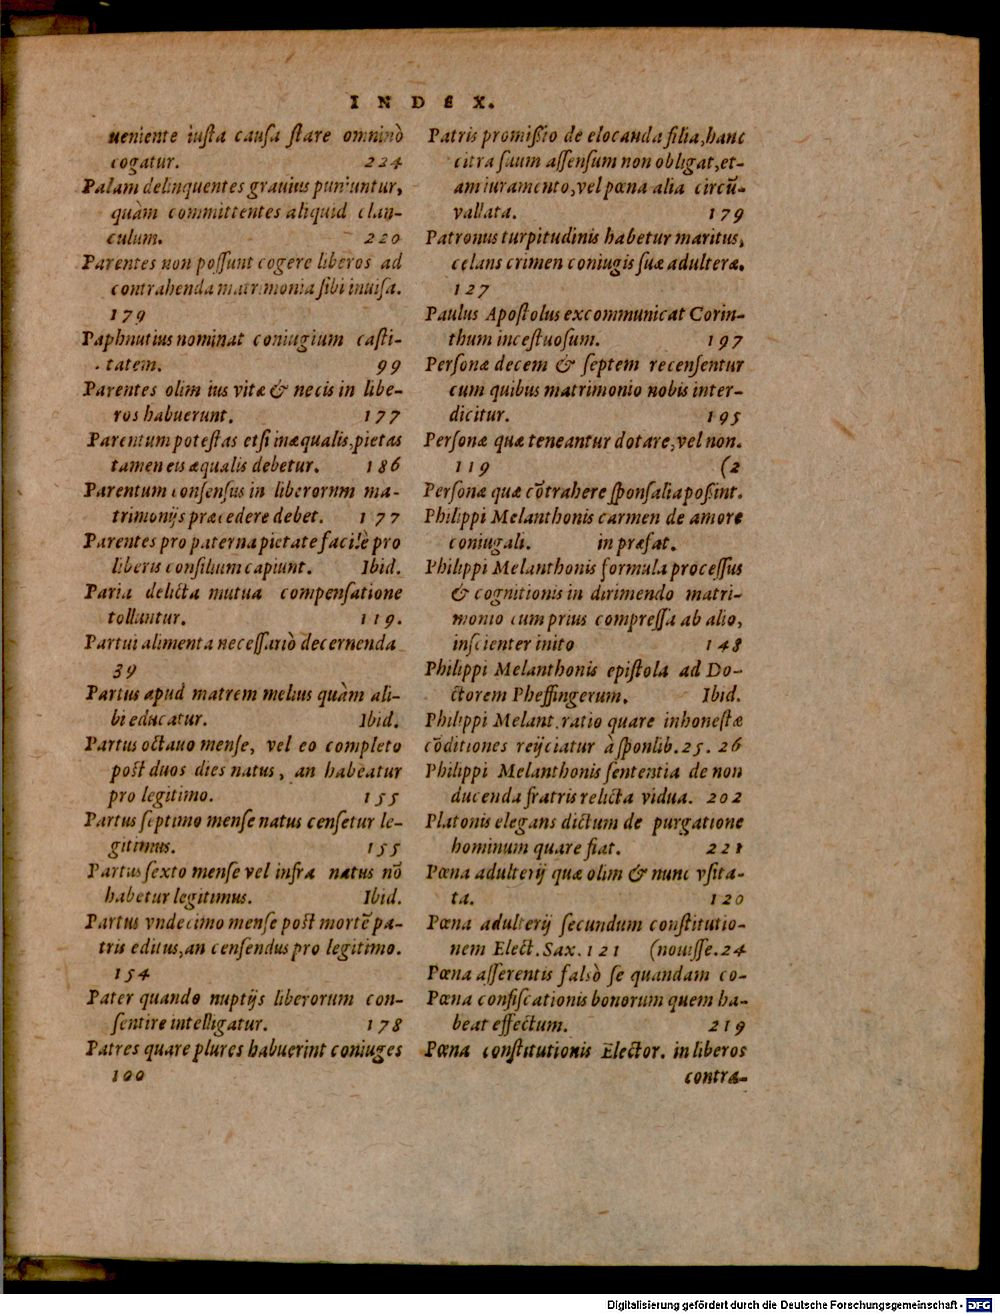 INDEX.
ueniente iusta causa stare omninò
cogatur. 224
Palam delinquentes grauius puniuntur,
quàm committentes aliquid clan-
culum. 220
Parentes non possunt cogere liberos ad
contrahenda matrimonia sibi inuisa.
179
Paphnutius nominat coniugium casti-
tatem. 99
Parentes olim ius vitæ & necis in libe-
ros habuerunt. 177
Parentum potestas etsi inæqualis, pietas
tamen eis æqualis debetur. 186
Parentum consensus in liberorum ma-
trimonijs præcedere debet. 177
Parentes pro paterna pietate facilè pro
liberis consilium capiunt. Ibid.
Paria delicta mutua compensatione
tollantur. 119.
Partui alimenta necessariò decernenda
39
Partus apud matrem melius quàm ali-
bi educatur. Ibid.
Partus octauo mense, vel eo completo
post duos dies natus, an habeatur
pro legitimo. 155
Partus septimo mense natus censetur le-
gitimus. 155
Partus sexto mense vel infra natus nō
habetur legitimus. Ibid.
Partus vndecimo mense post mortē pa-
tris editus, an censendus pro legitimo.
154
Pater quando nuptijs liberorum con-
sentire intelligatur. 178
Patres quare plures habuerint coniuges
100
Patris promissio de elocanda filia, hanc
citra suum assensum non obligat, et-
am iuramento, vel pœna alia circū-
vallata. 179
Patronus turpitudinis habetur maritus,
celans crimen coniugis suæ adulteræ.
127
Paulus Apostolus excommunicat Corin-
thum incestuosum. 197
Personæ decem & septem recensentur
cum quibus matrimonio nobis inter-
dicitur. 195
Personæ quæ teneantur dotare, vel non.
119 (2
Personæ quæ cōtrahere sponsalia possint.
Philippi Melanthonis carmen de amore
coniugali. in præfat.
Philippi Melanthonis formula processus
& cognitionis in dirimendo matri-
monio cum prius compressa ab alio,
inscienter inito 148
Philippi Melanthonis epistola ad Do-
ctorem Pheffingerum. Ibid.
Philippi Melant. ratio quare inhonestæ
cōditiones reijciatur à sponlib. 25. 26
Philippi Melanthonis sententia de non
ducenda fratris relicta vidua. 202
Platonis elegans dictum de purgatione
hominum quare fiat. 221
Pœna adulterij quæ olim & nunc vsita-
ta. 120
Pœna adulterij secundum constitutio-
nem Elect. Sax. 121 (nouisse. 24
Pœna asserentis falsò se quandam co-
Pœna confiscationis bonorum quem ha-
beat effectum. 219
Pœna constitutionis Elector. in liberos
contra-
Digitalisierung gefördert durch die Deutsche Forschungsgemeinschaft - DFG